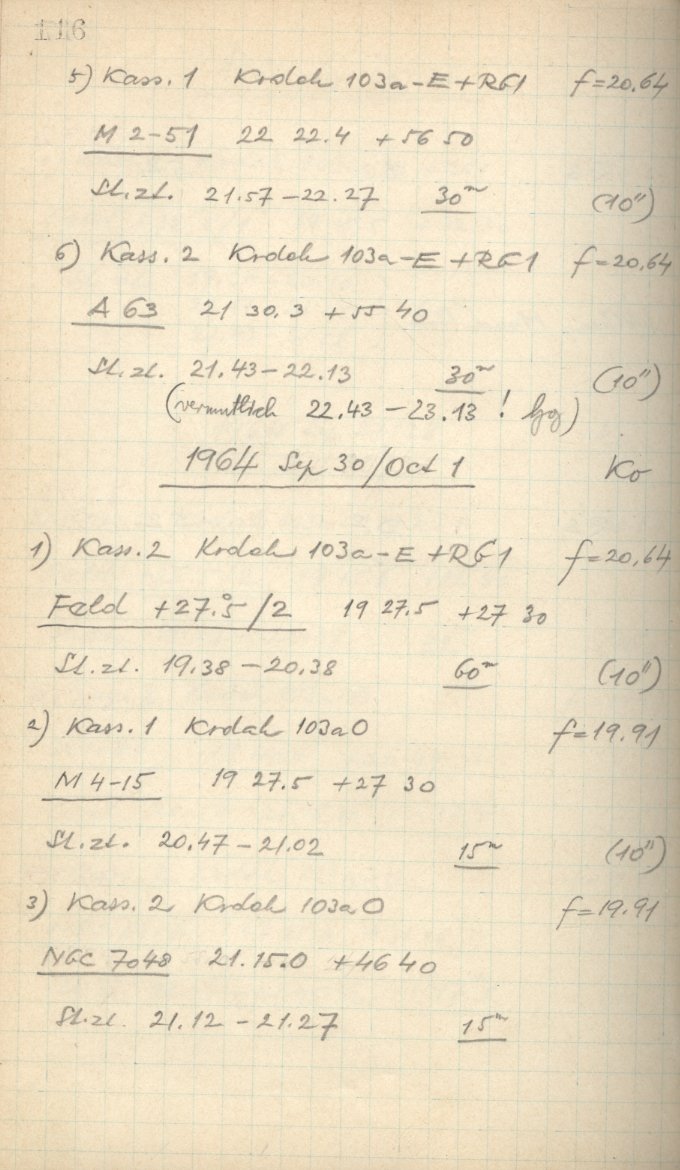 116
5) Kass. 1 Kodak 103a-E+RG1 f=20.64
M 2-51 22 22.4 +56 50
St.zt. 21.57-22.27 30m (10")
6) Kass. 2 Kodak 103a-E+RG1 f=20,64
A 63 21 30.3 +55 40
St.zt. 21.43-22.13 30m (10")
(vermutlich 22.43-23.13!)
1964 Sep 30/Oct 1 Ko
1) Kass. 2 Kodak 103a-E+RG1 f=20,64
Feld +27.°5/2 19 27.5 +27 30
St.zt. 19.38-20.38 60m (10")
2) Kass. 1 Kodak 103aO f=19.91
M 4-15 19 27.5 +27 30
St.zt. 20.47-21.02 15m (10")
3) Kass. 2 Kodak 103aO f=19.91
NGC 7048 21.15.0 +46 40
St.zt. 21.12-21.27 15m